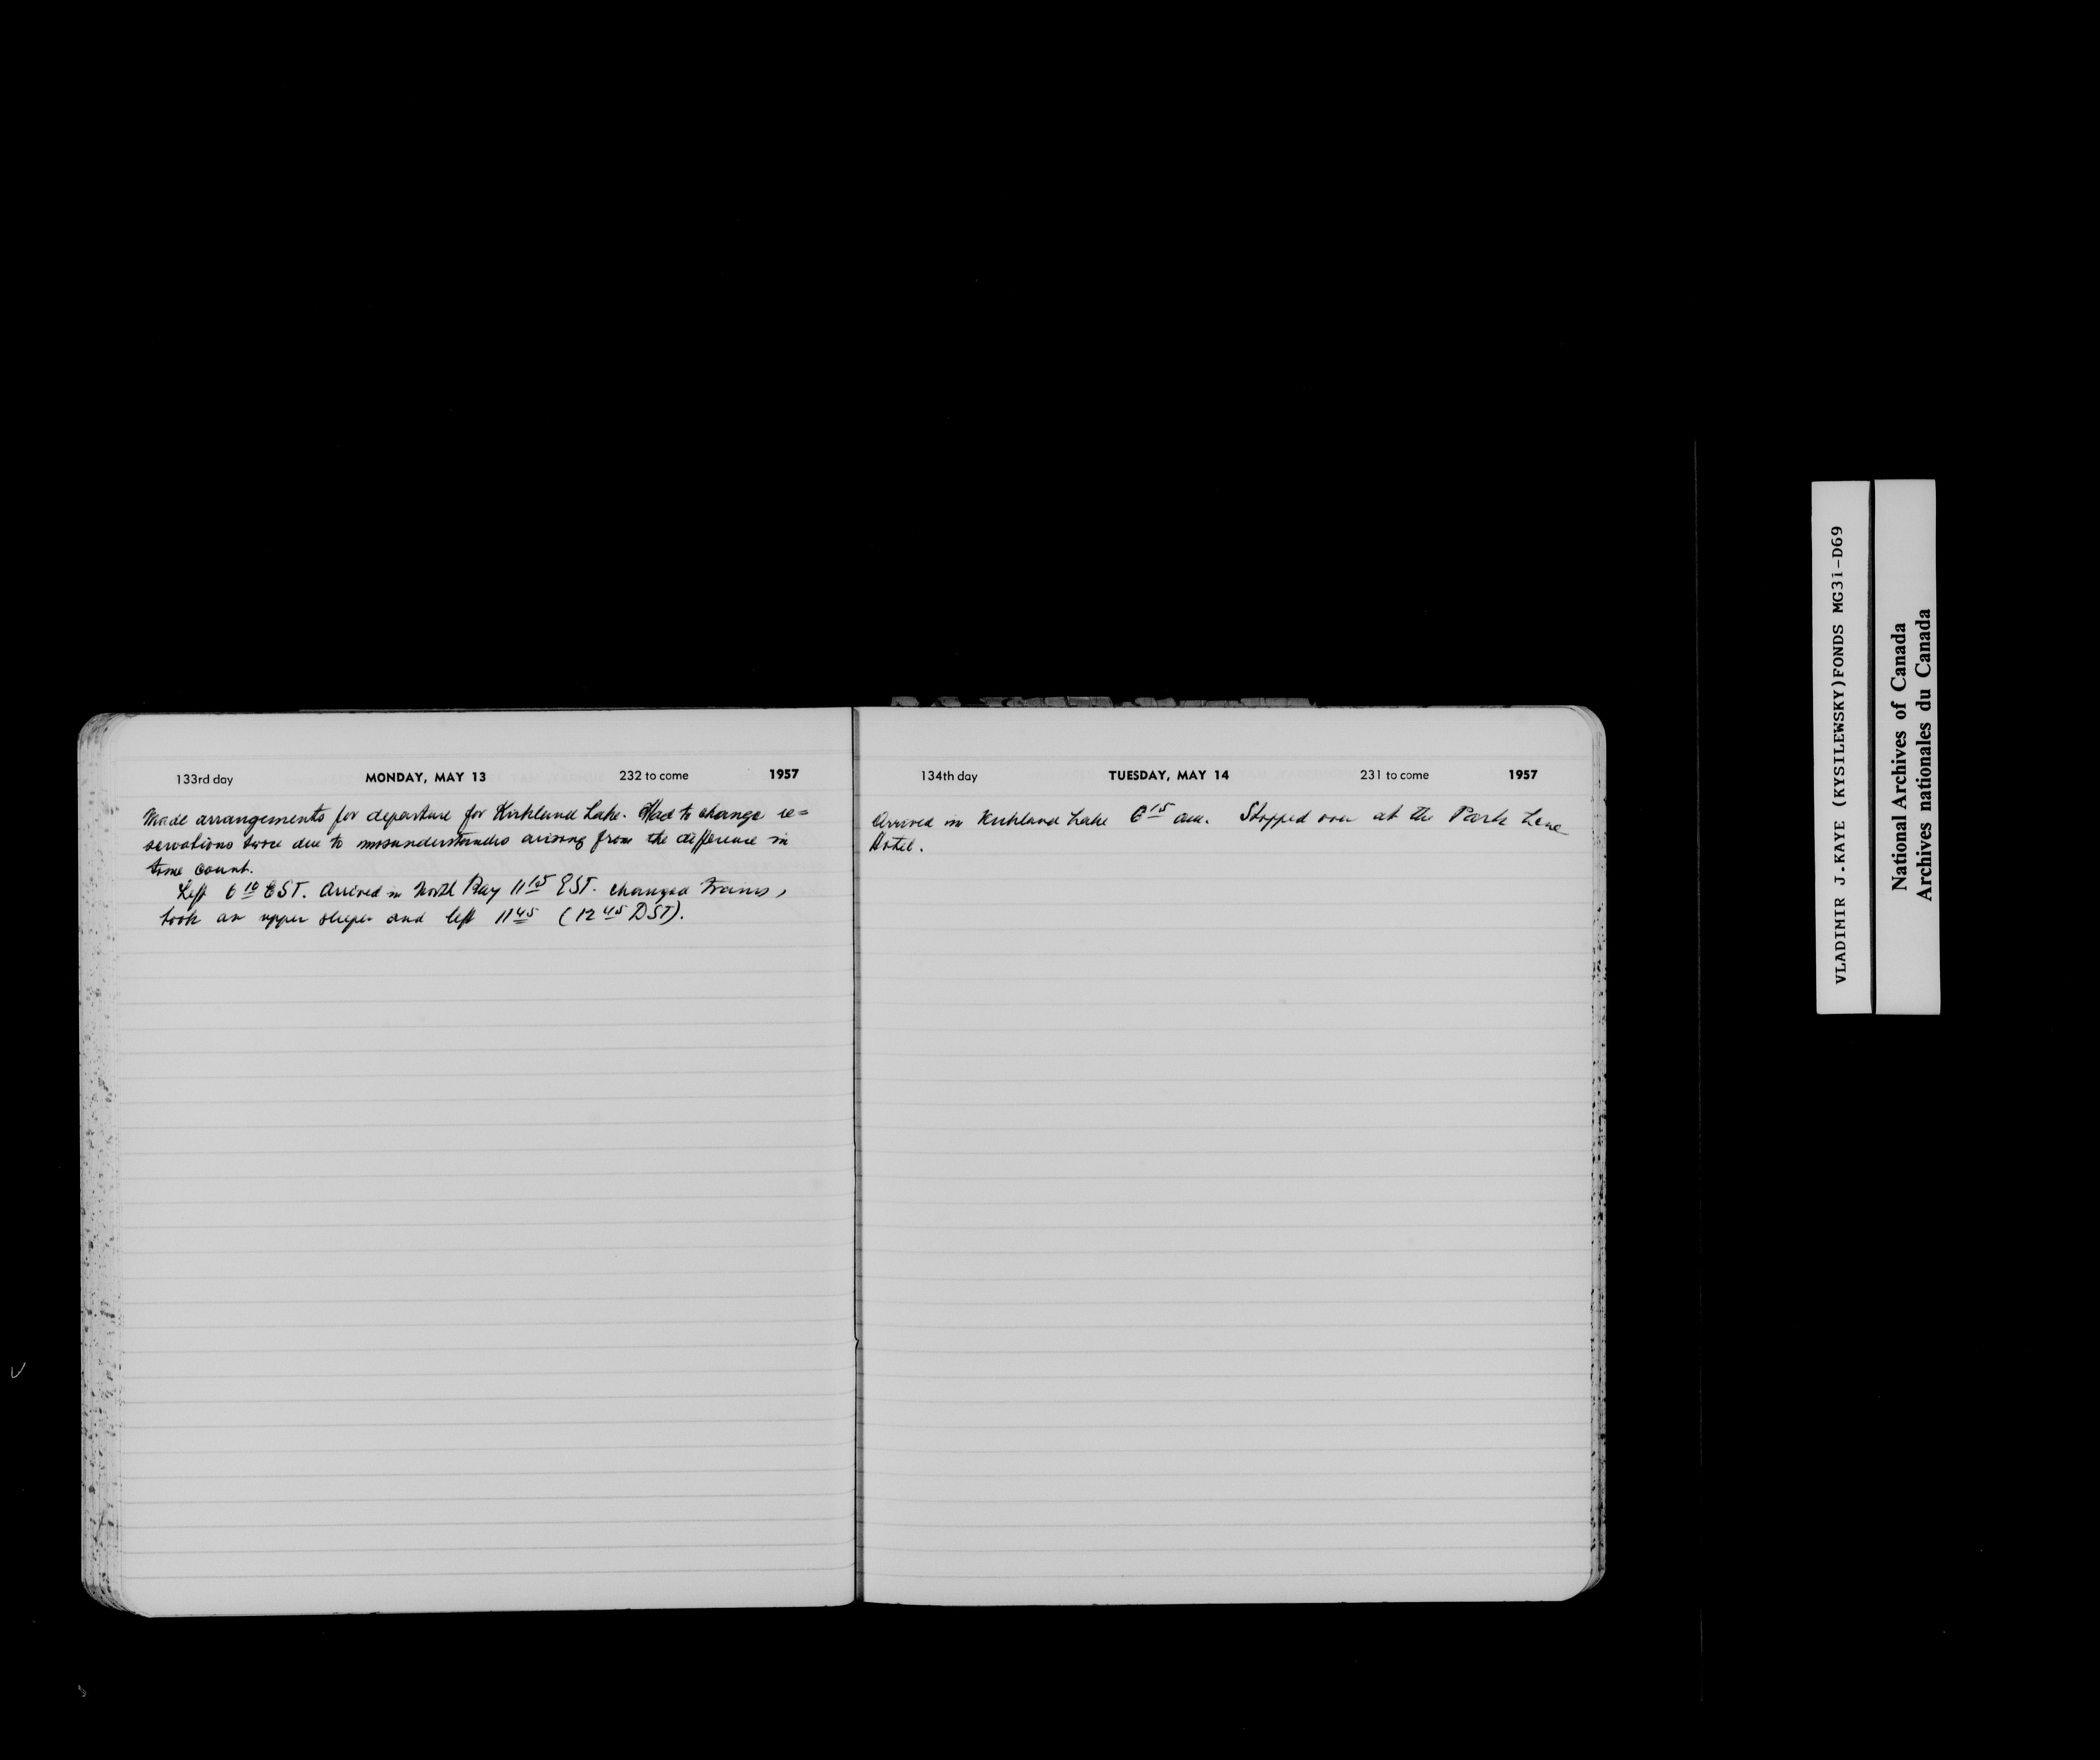 133rd day MONDAY, MAY 13 232 to come 1957
Made arrangements for departure for Kirkland Lake. Had to change re=
servations twice due to arising from the difference in
time count.
Left 6 10 EST. Arrived in North Bay 11 15 EST. changed trains,
took an upper sleeper and left 11 45 (12 45 DST).
134th day TUESDAY, MAY 14 231 to come 1957
Arrived in Kirkland Lake 6 15 am. Stopped over at the Park Lane
Hotel.
VLADIMIR J.KAYE (KYSILEWSKY)FONDS MG31-D69
National Archives of Canada
Archives nationales du Canada